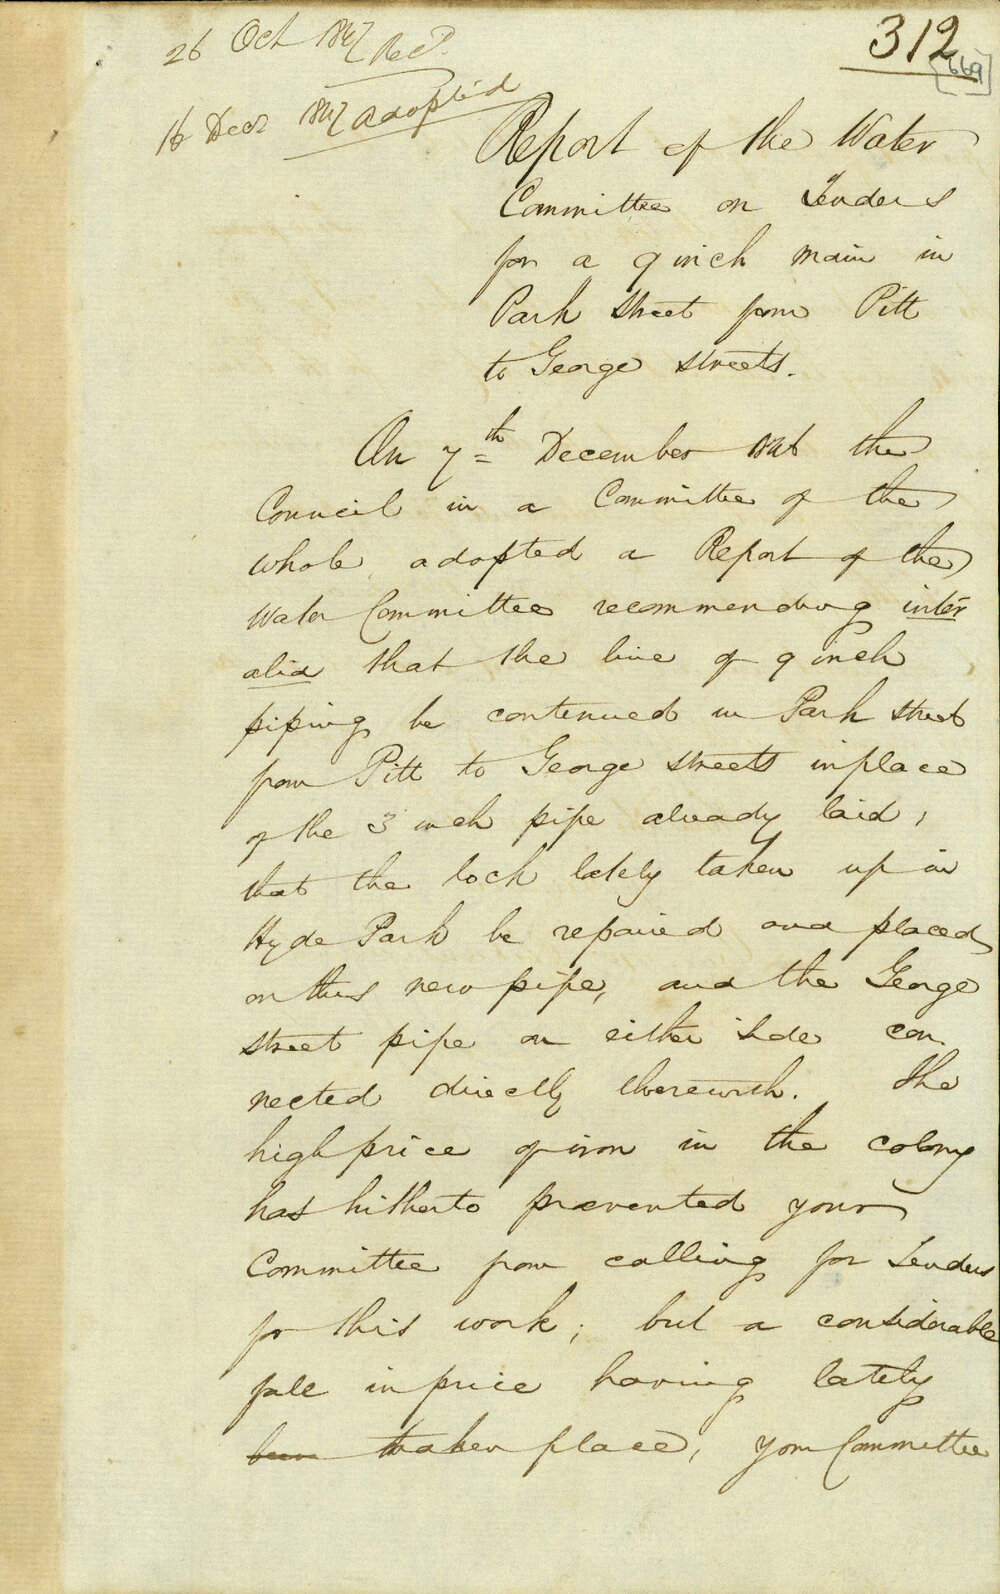 26 Oct 1847 Recd.
16 Decr 1847 adopted
312
[669]
Report of the Water
Committee on Tenders
for a 9 inch main in
Park Street from Pitt
to George streets.
On 7th December 1846 the
Council in a Committee of the
whole adopted a Report of the
Water Committee recommending inter
alia that the line of 9 inch
piping be continued in Park Street
from Pitt to George streets in place
of the 3 inch pipe already laid,
that the lock lately taken up in
Hyde Park be repaired and placed
on this new pipe, and the George
street pipe on either side con
nected directly therewith. The
high price of iron in the colony
has hitherto prevented your
Committee from calling for Tenders
for this work; but a considerable
fall in price having lately
been taken place, your Committee